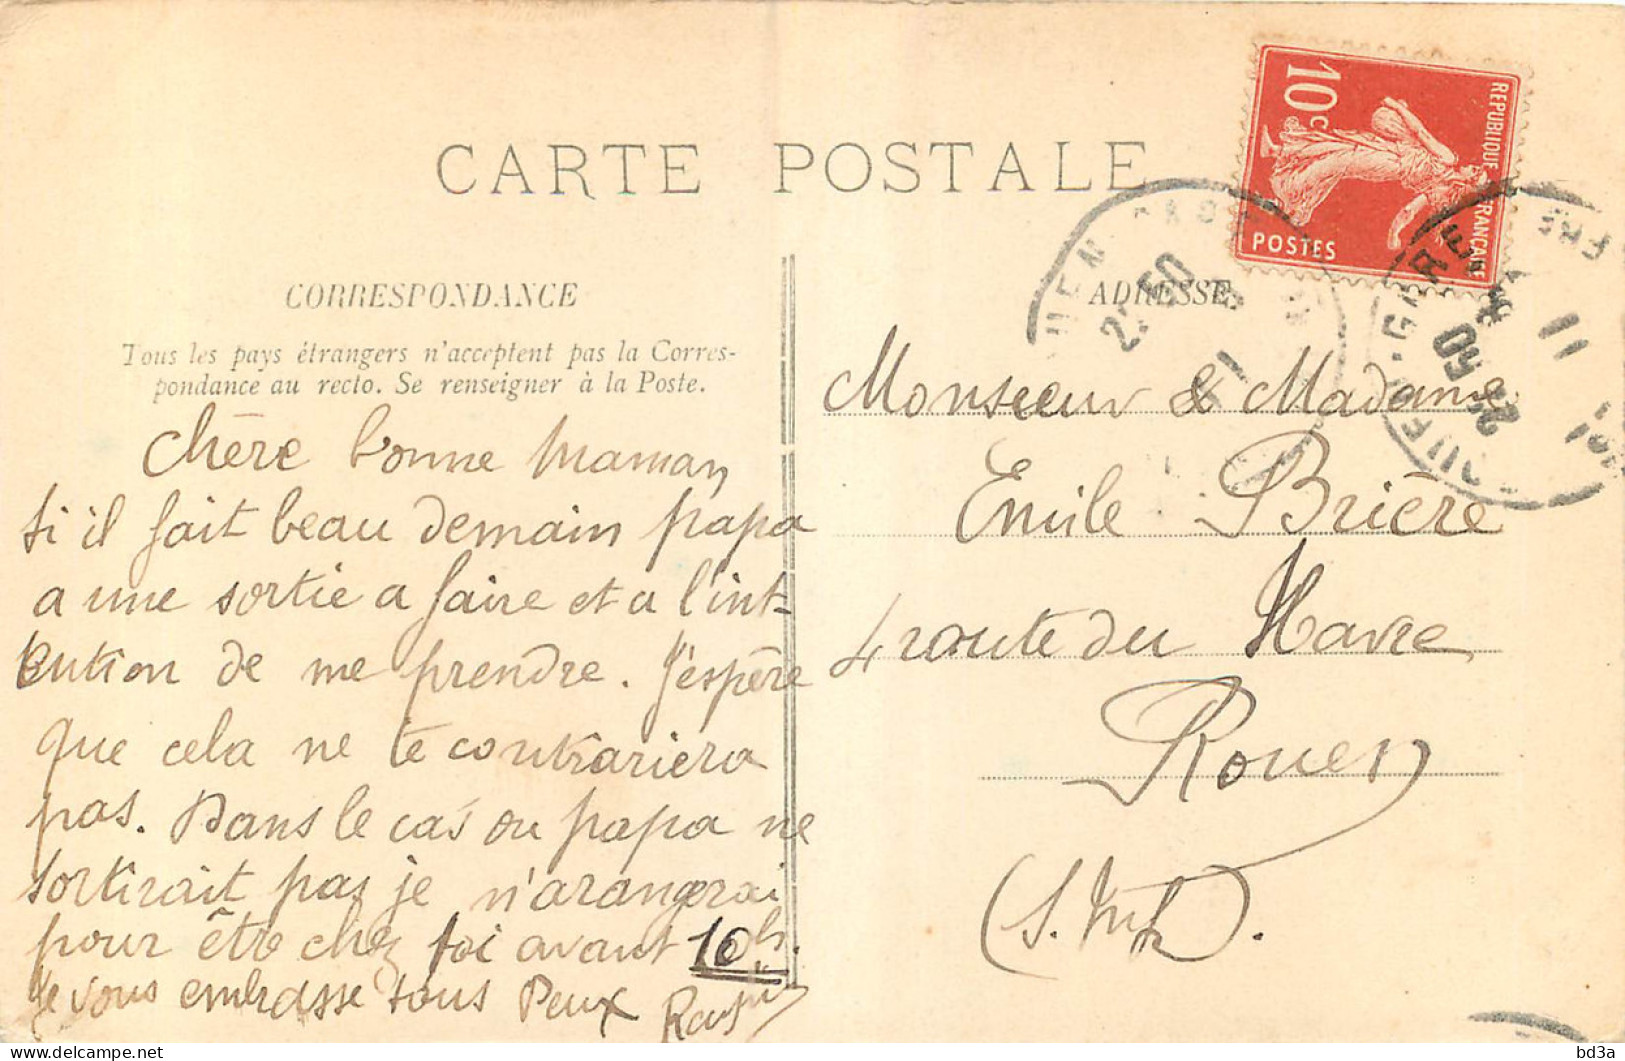 CARTE POSTALE
CORRESPONDANCE
Tous les pays étrangers n'acceptent pas la Corres-
pondance au recto. Se renseigner à la Poste.
Chère bonne maman
si il fait beau demain papa
a une sortie a faire et a l'int-
ention de me prendre. J'espère
que cela ne te contrariera
pas. Dans le cas ou papa ne
sortirait pas je n'arangerai
pour être chez toi avant 10h.
Je vous embrasse tous Deux
10c
REPUBLIQUE FRANÇAISE
POSTES
ADRESSE
Monsieur & Madame
Emile Brière
4 route du Havre
Rouen
(S. Infre).
GARE
22 50
11
bd3a